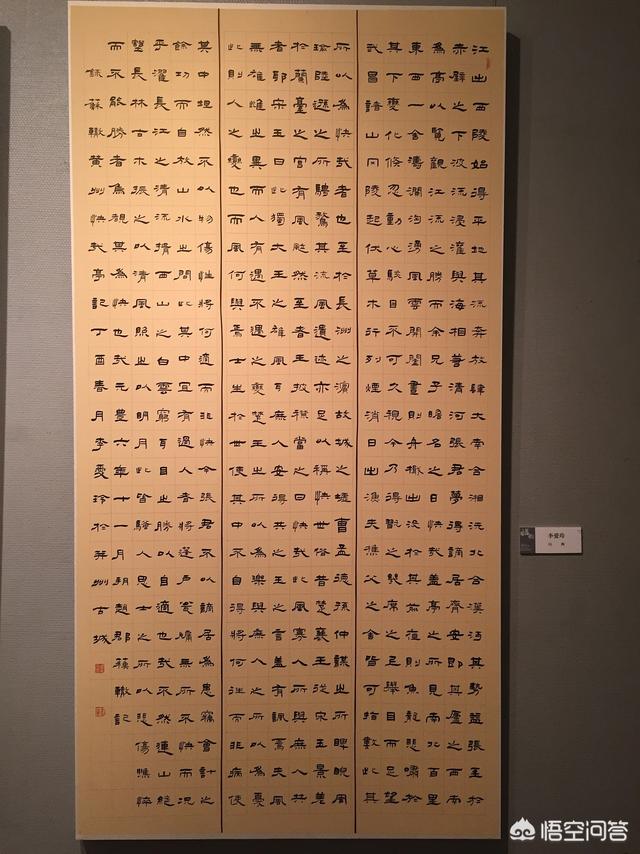 江出西陵始得平地其流奔放肆大南合湘沅北合漢沔其勢益張至於
赤壁之下波流浸灌與海相若清河張君夢得謫居齊安即其廬之西南
為亭以覽觀江流之勝而余兄子瞻名之曰快哉蓋亭之所見南北百里
東西一舍濤瀾洶湧風雲開闔晝則舟楫出沒於其前夜則魚龍悲嘯於
其下變化倏忽動心駭目不可久視今乃得翫之几席之上舉目而足望
武昌諸山岡陵起伏草木行列煙消日出漁夫樵父之舍皆可指數此其
所以為快哉者也至於長洲之濱故城之墟曹孟德孫仲謀之所睥睨周
瑜陸遜之所騁騖其流風遺迹亦足以稱快世俗昔楚襄王從宋玉景差
於蘭臺之宮有風颯然至者王披襟當之曰快哉此風寡人所與庶人共
者耶宋玉曰此獨大王之雄風耳庶人安得共之玉之言蓋有諷焉夫風
無雄雌之異而人有遇不遇之變楚王之所以為樂與庶人之所以為憂
此則人之變也而風何與焉士生於世使其中不自得將何往而非病使
其中坦然不以物傷性將何適而非快今張君不以謫居為患竊會計之
餘功而自放山水之間此其中宜有過人者將蓬戶甕牖無所不快而況
乎濯長江之清流揖西山之白雲窮耳目之勝以自適也哉不然連山絕
壑長林古木振之以清風照之以明月此皆騷人思士之所以悲傷憔悴
而不能勝者烏覩其為快也哉元豐六年十一月朔趙郡蘇轍記
錄蘇轍黃州快哉亭記丁酉春月李愛玲於并州古城
李愛玲
悟空问答